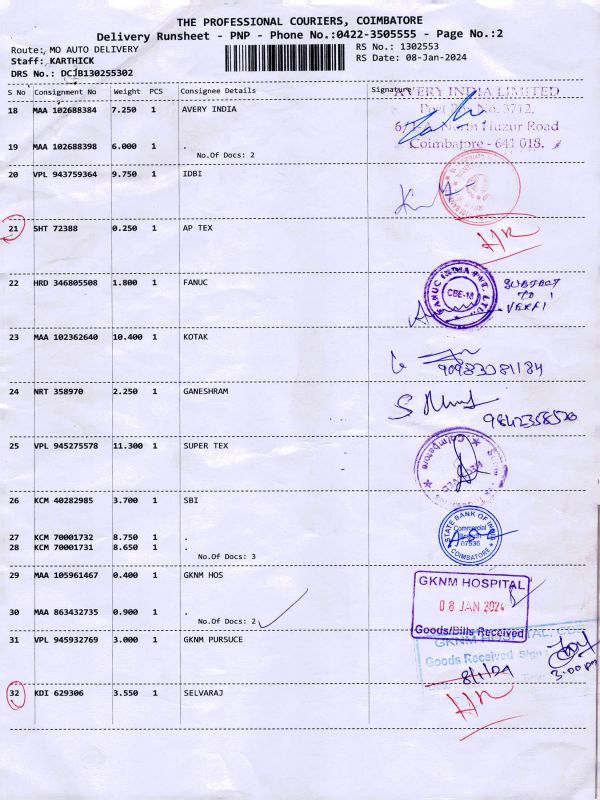 THE PROFESSIONAL COURIERS, COIMBATORE
Delivery Runsheet - PNP - Phone No.:0422-3505555 - Page No.:2
Route: MO AUTO DELIVERY
Staff: KARTHICK
DRS No.: DCJB130255302
RS No.: 1302553
RS Date: 08-Jan-2024
S No Consignment No Weight PCS Consignee Details Signature
18 MAA 102688384 7.250 1 AVERY INDIA
AVERY INDIA LIMITED
Post Box No. 3712,
North Huzur Road
Coimbatore - 641 018.
19 MAA 102688398 6.000 1 .
No.Of Docs: 2
20 VPL 943759364 9.750 1 IDBI
21 SHT 72388 0.250 1 AP TEX
HR
22 HRD 346805508 1.800 1 FANUC
FANUC INDIA PVT. LTD.
CBE-18
SUBJECT
TO
VERFI
23 MAA 102362640 10.400 1 KOTAK
24 NRT 358970 2.250 1 GANESHRAM
25 VPL 945275578 11.300 1 SUPER TEX
Coimbatore
26 KCM 40282985 3.700 1 SBI
STATE BANK OF INDIA
Commercial
COIMBATORE
27 KCM 70001732 8.750 1 .
28 KCM 70001731 8.650 1 .
No.Of Docs: 3
29 MAA 105961467 0.400 1 GKNM HOS
GKNM HOSPITAL
08 JAN 2024
Goods/Bills Received
30 MAA 863432735 0.900 1 .
No.Of Docs: 2
31 VPL 945932769 3.000 1 GKNM PURSUCE
GKNM HOSPITAL, CBE
Goods Received Sign
8/1/24
3:00 pm
32 KDI 629306 3.550 1 SELVARAJ
HR